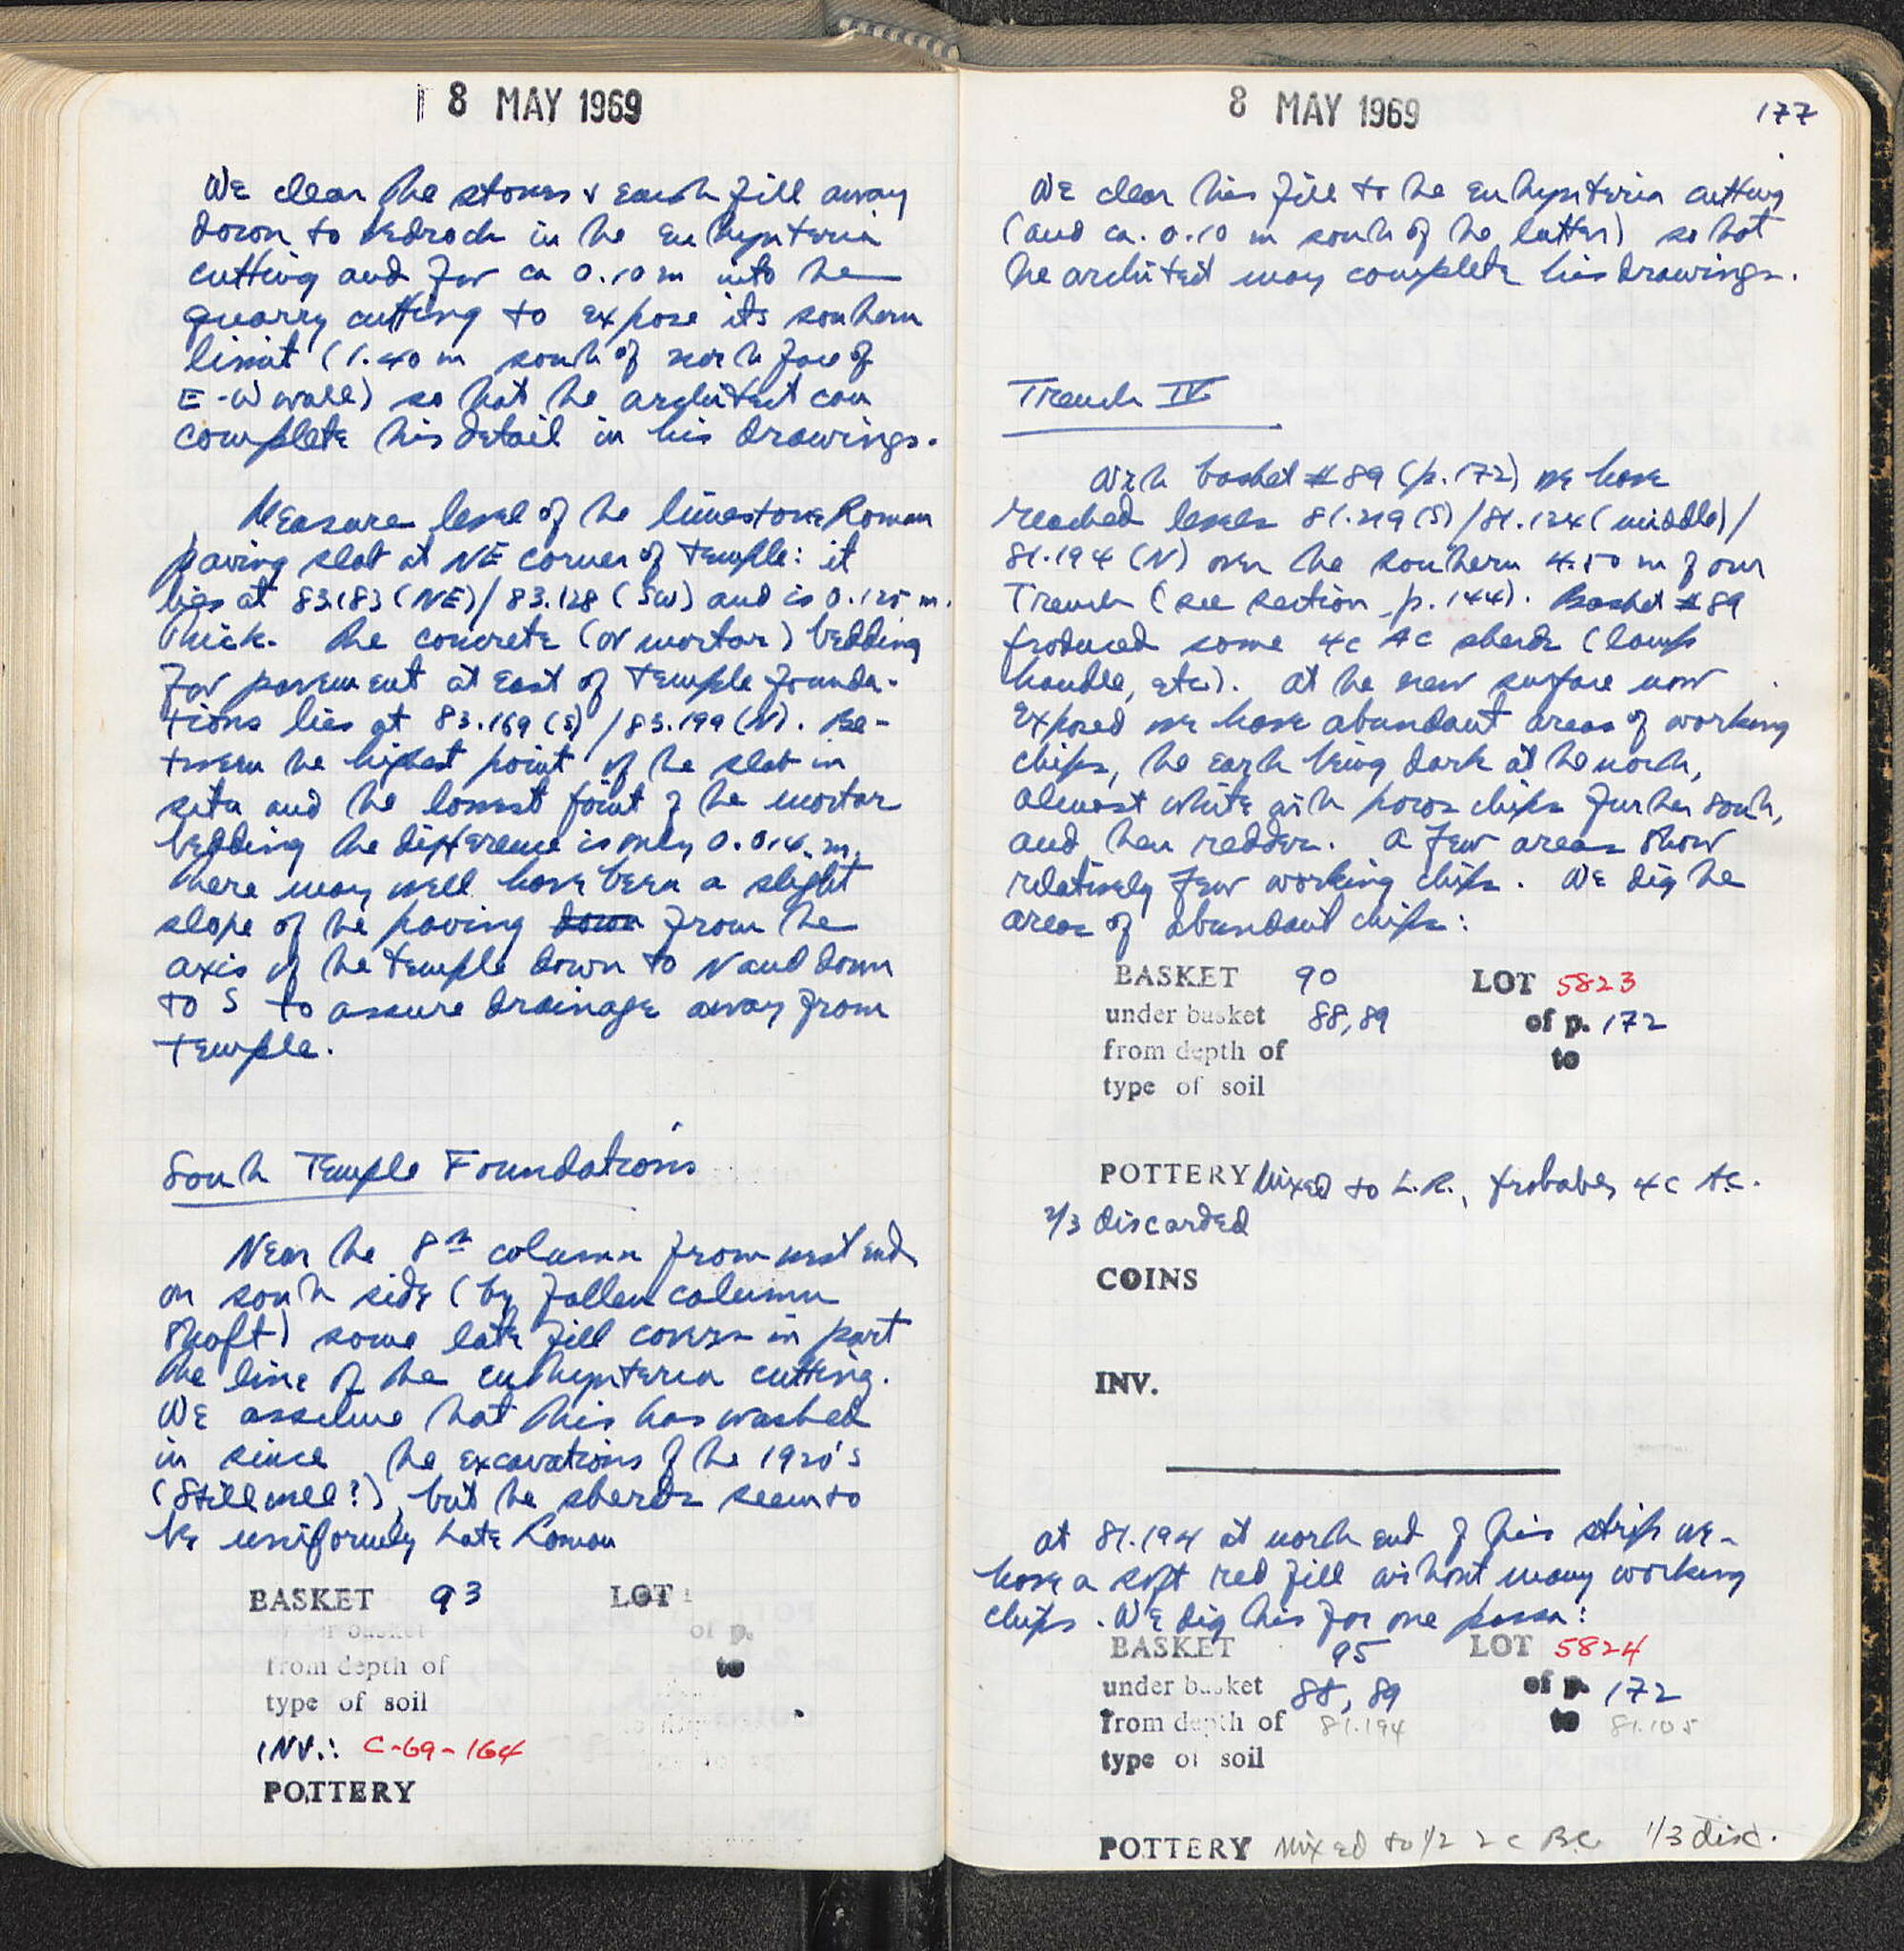 8 MAY 1969
We clear the stones & earth fill away
down to bedrock in the euthynteria
cutting and for ca 0.10 m into the
quarry cutting to expose its southern
limit (1.40 m south of north face of
E-W wall) so that the architect can
complete this detail in his drawings.
Measure level of the limestone Roman
paving slab at NE corner of temple: it
lies at 83.183 (NE)/83.128 (SW) and is 0.125 m.
thick. The concrete (or mortar) bedding
for pavement at east of temple founda-
tions lies at 83.169 (S)/83.199 (N). Be-
tween the highest point of the slab in
situ and the lowest point of the mortar
bedding the difference is only 0.014 m.
There may well have been a slight
slope of the paving down from the
axis of the temple down to N and down
to S to assure drainage away from
temple.
South Temple Foundations
Near the 8th column from west end
on south side (by fallen column
shaft) some late fill covers in part
the line of the euthynteria cutting.
We assume that this has washed
in since the excavations of the 1920's
(Stillwell?), but the sherds seem to
be uniformly Late Roman
BASKET 93 LOT
under basket of p.
from depth of to
type of soil
INV.: C-69-164
POTTERY
8 MAY 1969 177
We clear this fill to the euthynteria cutting
(and ca. 0.10 m south of the latter) so that
the architect may complete his drawings.
Trench IV
With basket #89 (p. 172) we have
reached levels 81.219 (S)/81.124 (middle)/
81.194 (N) over the southern 4.50 m of our
Trench (see section p. 144). Basket #89
produced some 4c AC sherds (lamp
handle, etc.). At the new surface now
exposed we have abundant areas of working
chips, the earth being dark at the north,
almost white with poros chips further south,
and then redder. A few areas show
relatively few working chips. We dig the
areas of abundant chips:
BASKET 90 LOT 5823
under basket 88,89 of p. 172
from depth of to
type of soil
POTTERY Mixed to L.R., probably 4c AC.
2/3 discarded
COINS
INV.
At 81.194 at north end of this strip we
have a soft red fill without many working
chips. We dig this for one passa:
BASKET 95 LOT 5824
under basket 88, 89 of p. 172
from depth of 81.194 to 81.105
type of soil
POTTERY Mixed to 1/2 2c BC. 1/3 disc.